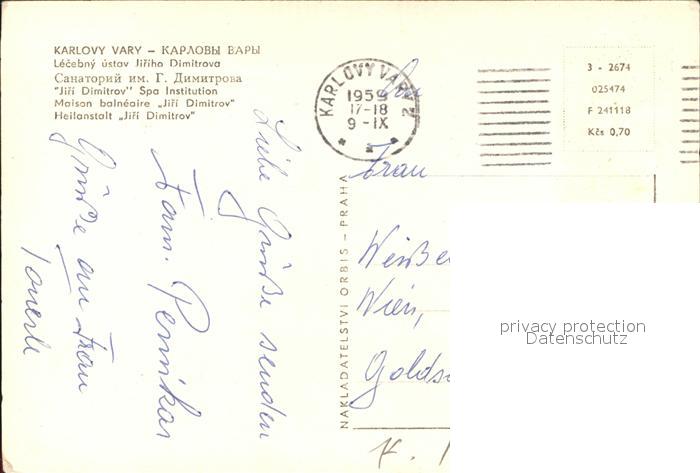 KARLOVY VARY – КАРЛОВЫ ВАРЫ
Léčebný ústav Jiřího Dimitrova
Санаторий им. Г. Димитрова
"Jiří Dimitrov" Spa Institution
Maison balnéaire „Jiří Dimitrov"
Heilanstalt „Jiří Dimitrov"
KARLOVY VARY 2
1959
17-18
9-IX
3 - 2674
025474
F 241118
Kčs 0,70
Liebe Grüße senden
Fam.
Grüße an Frau
NAKLADATELSTVÍ ORBIS – PRAHA
An
Frau
Wien,
privacy protection
Datenschutz